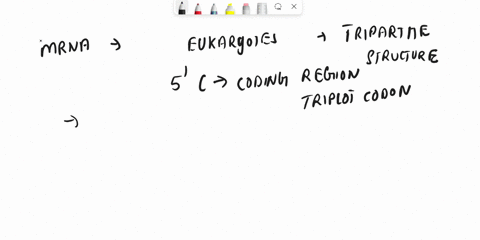 mRNA → EUKARYOTES → TRIPARTITE
STRUCTURE
5' C → CODING REGION
TRIPLOT CODON
→